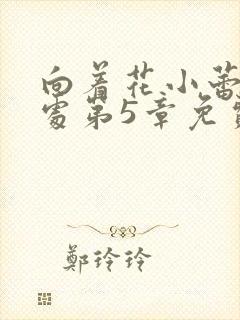 向着花小蕾
处第5章免
鄭玲玲